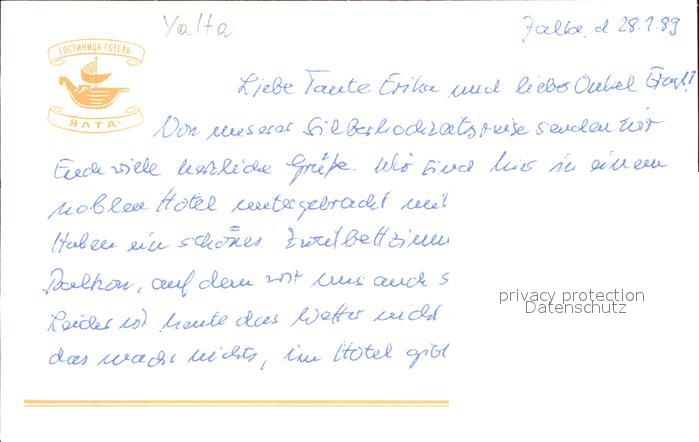 Yalta
Jalta, d 28.1.89
ГОСТИНИЦА·ГОТЕЛЬ
·ЯЛТА·
Liebe Tante Erika und lieber Onkel
Von unserer Silberhochzeitsreise senden wir
Euch viele herzliche Grüße. Wir sind hier in einem
noblen Hotel untergebracht mit
Haben ein schönes Zweibettzimm
Balkon, auf dem wir uns auch s
Leider ist heute das Wetter nicht
das macht nichts, im Hotel gibt
privacy protection
Datenschutz